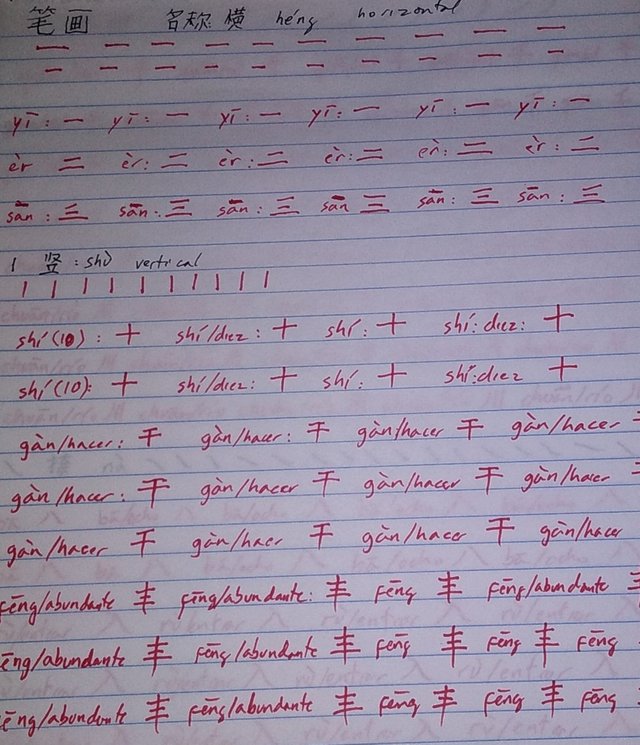 笔画 名称: 横 héng horizontal
一 一 一 一 一 一 一 一 一 一
一 一 一 一 一 一 一 一 一 一 一
yī: 一 yī: 一 yī: 一 yī: 一 yī: 一 yī: 一
èr 二 èr: 二 èr: 二 èr: 二 èr: 二 èr: 二
sān: 三 sān: 三 sān: 三 sān 三 sān: 三 sān: 三
丨 竖: shù vertical
丨 丨 丨 丨 丨 丨 丨 丨 丨
shí(10): 十 shí/diez: 十 shí: 十 shí: diez: 十
shí(10): 十 shí/diez: 十 shí: 十 shí:diez 十
gàn/hacer: 干 gàn/hacer: 干 gàn/hacer 干 gàn/hacer
gàn/hacer: 干 gàn/hacer 干 gàn/hacer 干 gàn/hacer
gàn/hacer 干 gàn/hacer 干 gàn/hacer 干 gàn/hacer
fēng/abundante 丰 fēng/abundante: 丰 fēng 丰 fēng/abundante
ēng/abundante 丰 fēng/abundante 丰 fēng 丰 fēng 丰 fēng
ēng/abundante 丰 fēng/abundante 丰 fēng 丰 fēng 丰 fēng